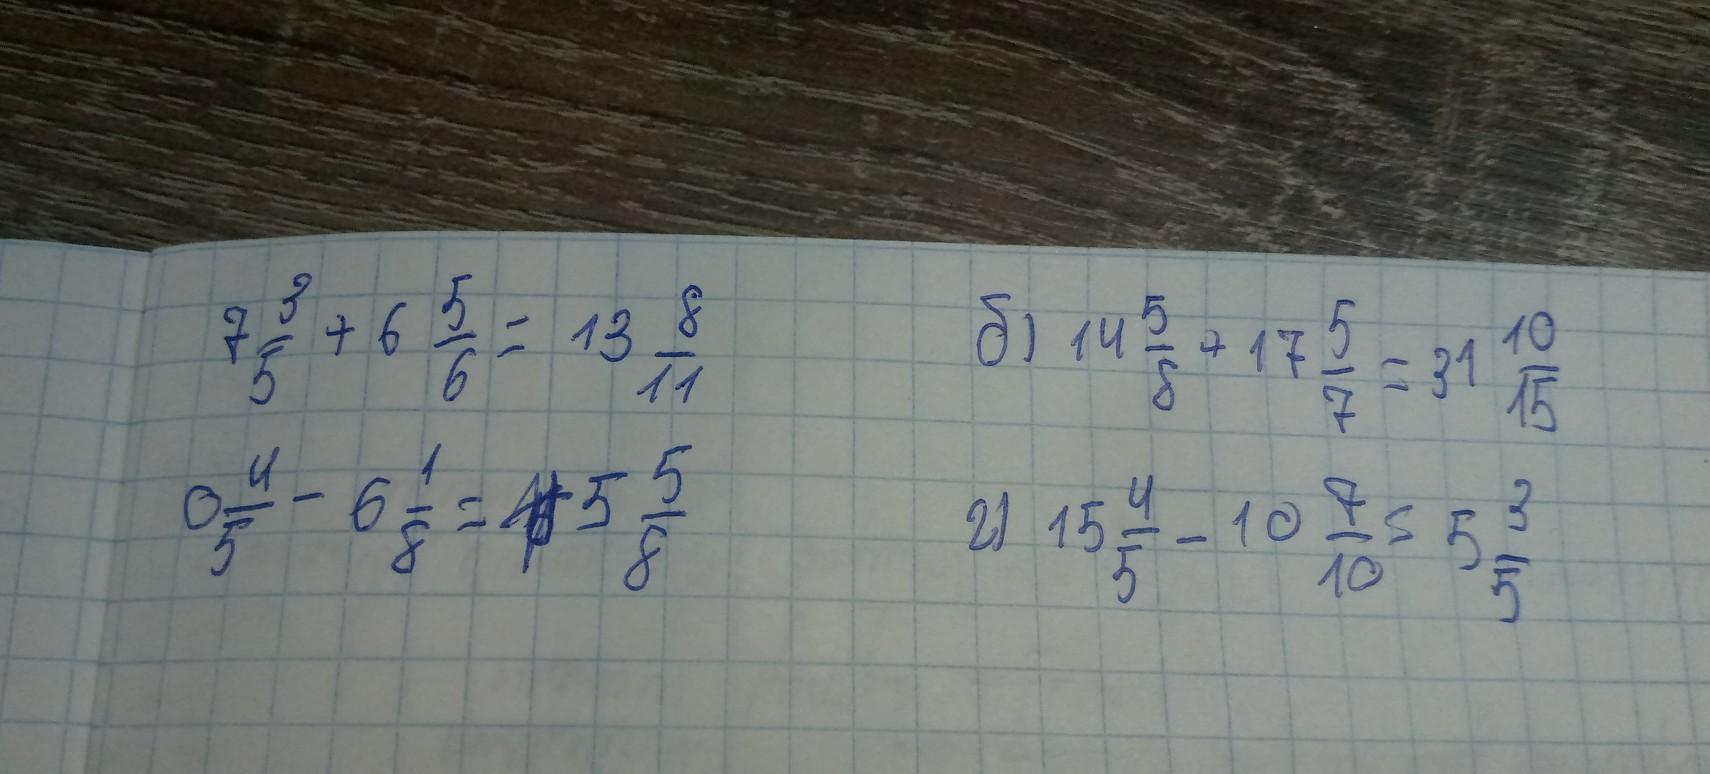 7 3/5 + 6 5/6 = 13 8/11
б) 14 5/8 + 17 5/7 = 31 10/15
0 4/5 - 6 1/8 = 5 5/8
г) 15 4/5 - 10 7/10 = 5 3/5